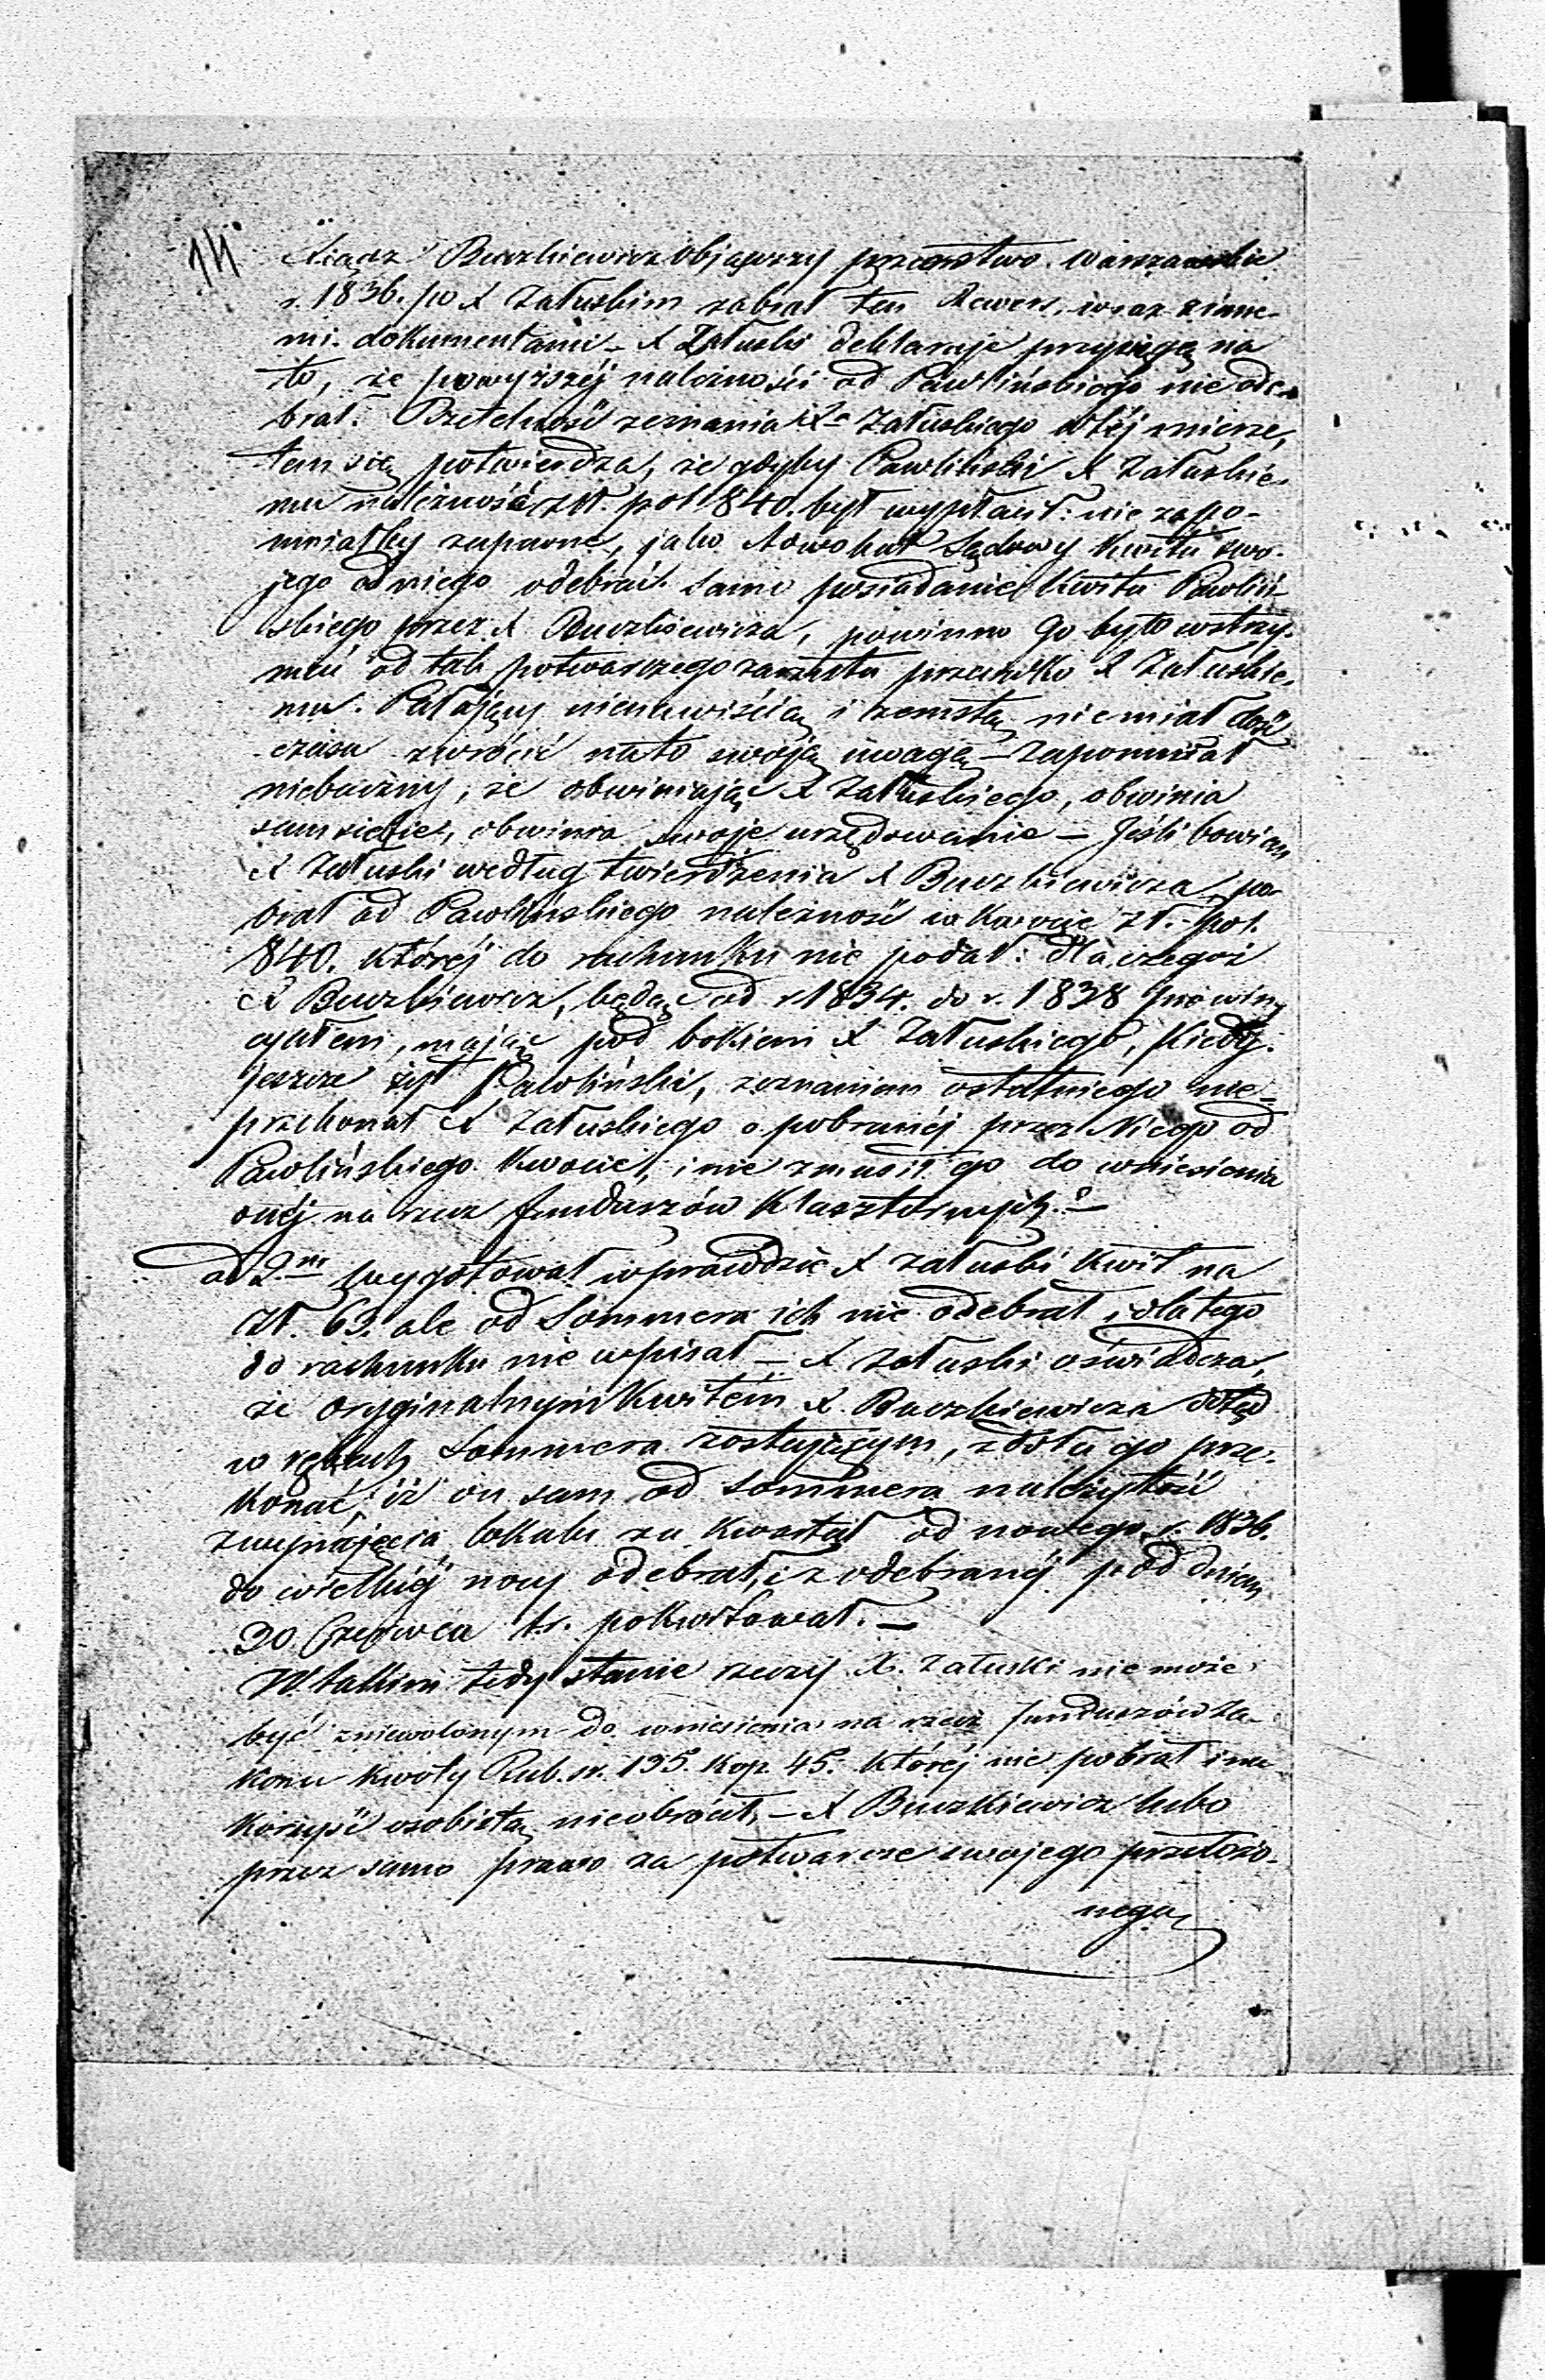 14
Xiądz Buczkiewicz objąwszy przeorstwo Warszawskie
r. 1836. po X Załuskim zabrał ten Rewers, wraz z inne-
mi dokumentami – X Załuski deklaruje przysięgę na
to, że powyższéj należności od Pawlińskiego nie ode-
brał. Rzetelność zeznania Xa Załuskiego w téj mierze,
tem się potwierdza, że gdyby Pawliński X Załuskie-
mu należność złt. pol 840. był wypłacił: nie zapo-
mniałby zapewne, jako Adwokat Sądowy Kwitu swo-
jego od niego odebrać. Samo posiadanie Kwitu Pawliń-
skiego przez X Buczkiewicza, powinno Go było wstrzy-
mać od tak potwarczego zarzutu przeciwko X Załuskie-
mu. Pałający nienawiścią i zemstą nie miał dość
czasu zwrócić na to swoją uwagę – zapomniał
niebaczny, że obwiniając X Załuskiego, obwinia
sam siebie, obwinia swoje urzędowanie – Jeśli bowiem
X Załuski według twierdzenia X Buczkiewicza, po-
brał od Pawlińskiego należność w kwocie zł. pol.
840. któréj do rachunku nie podał: dla czegoż
X Buczkiewicz, będąc od r 1834. do r. 1838 prowin-
cyałem, mając pod bokiem X Załuskiego, kiedy
jeszcze żył Pawliński, zeznaniem ostatniego nie
przekonał X Załuskiego o pobranéj przez Niego od
Pawlińskiego Kwocie, i nie zmusił go do wniesienia
onéj na rzecz funduszów Klasztornych? –
ad 2m przygotował wprawdzie X Załuski Kwit na
Złt. 63. ale od Sommera ich nie odebrał, i dlatego
do rachunku nie wpisał – X Załuski oświadcza,
że oryginalnym Kwitem X. Buczkiewicza dotąd
w rękach Sommera zostającym, zdoła go prze-
konać, iż on sam od Sommera należytość
z wynajęcia lokalu za Kwartał od nowego r. 1836.
do wielkiéj nocy odebrał, i z odebranéj pod dniem
30 Czerwca tr. pokwitował. –
W takim tedy stanie rzeczy X. Załuski nie może
być zniewolonym do wniesienia na rzecz funduszów Za-
konu kwoty Rub. sr. 135. Kop. 45. któréj nie pobrał i na
korzyść osobistą nieobrócił, – X Buczkiewicz lubo
przez samo prawo za potwarcze swojego przełożo-
nego,